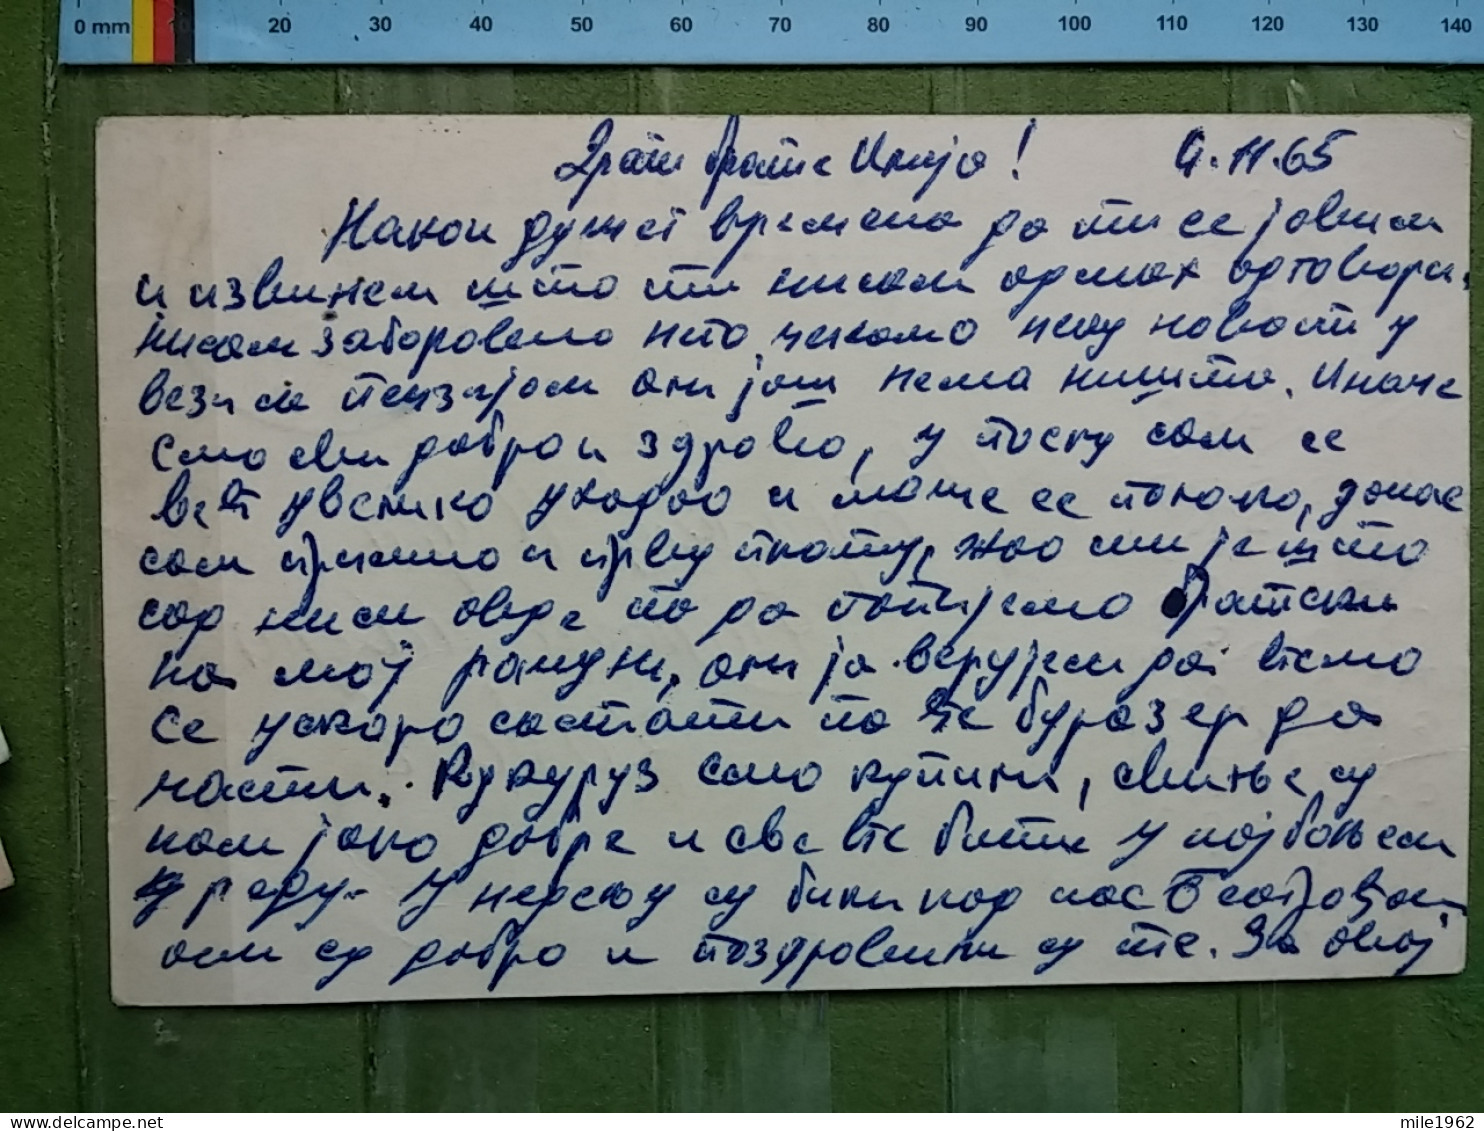 0 mm 20 30 40 50 60 70 80 90 100 110 120 130 140
Драги брате Илија! 9.11.65
Након дужег времена да ти се јавим
и извинем што ти нисам одмах одговорио.
нисам заборавио него чекамо неку новост у
вези са пензијом али још нема ништа. Иначе
смо сви добро и здраво, у послу сам се
већ увелико уходао и може се полако, данас
сам примио и прву плату, жао ми је што
сад ниси овде па да попијемо братски
на мој рачун, али ја верујем да ћемо
се ускоро састати па ће буразер да
части. Кукуруз смо купили, свиње су
нам јако добре и све ће бити у најбољем
реду. У недељу су били код нас Београђани,
сви су добро и поздравили су те. За овај
mile1962